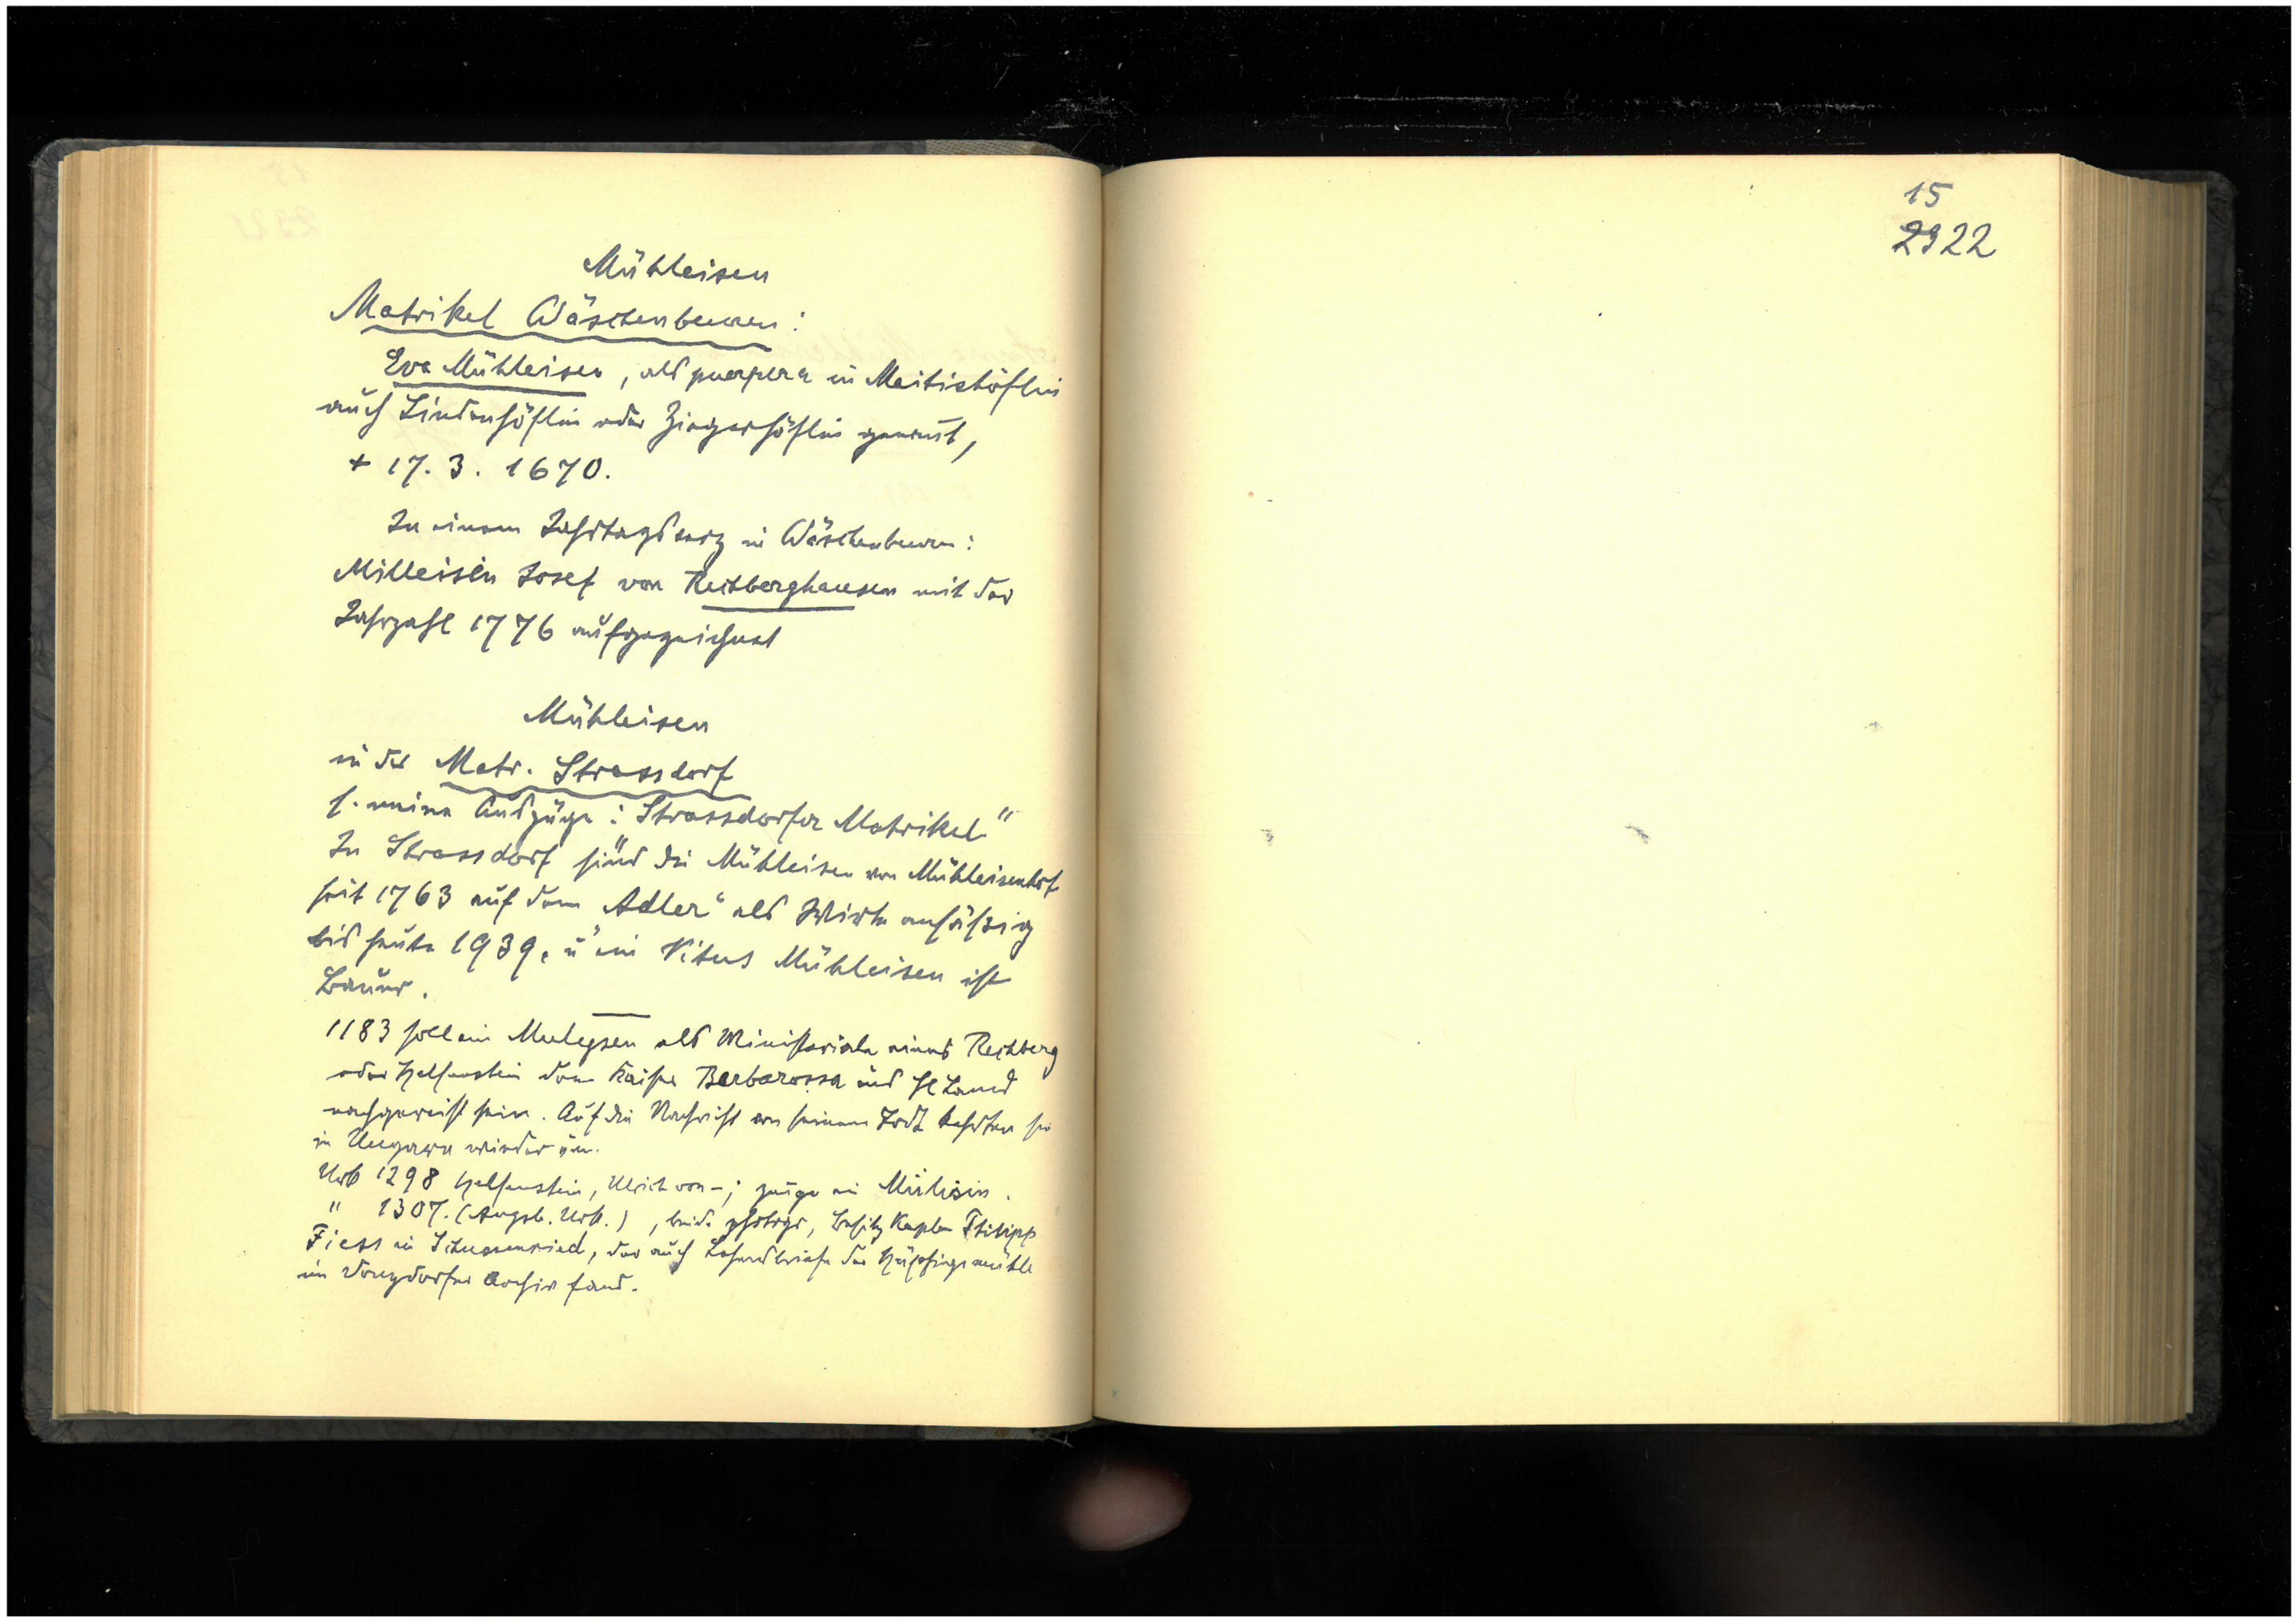 Mühleisen
Matrikel Wäschenbeuren:
Eva Mühleisen, als puerpera in Meitishöflin
auch Lindenhöflin oder Ziegerhöflin genannt,
+ 17. 3. 1670.
In einem Jahrtagsverz in Wäschenbeuren:
Milleisin Josef von Rechberghausen mit der
Jahrzahl 1776 aufgezeichnet
Mühleisen
in der Matr. Strassdorf
s. meine Auszüge: "Strassdorfer Matrikel"
In Strassdorf sind die Mühleisen von Mühleisenhof
seit 1763 auf dem "Adler" als Wirte ansässig
bis heute 1939, u ein Vitus Mühleisen ist
Bauer.
1183 soll ein Muleysen als Ministeriale eines Rechberg
oder Helfenstein dem Kaiser Barbarossa ins Hl Land
nachgereist sein. Auf die Nachricht von seinem Tod kehrten sie
in Ungarn wieder um.
Urk 1298 Helfenstein, Ulrich von -; zeuge ein Mülisin.
" 1307. (Augsb. Urk.), beide phstogr, Besitz Kaplan Philipp
Fiess in Schussenried, der auch Lehensbriefe der
im Donzdorfer Archiv fand.
15
2922